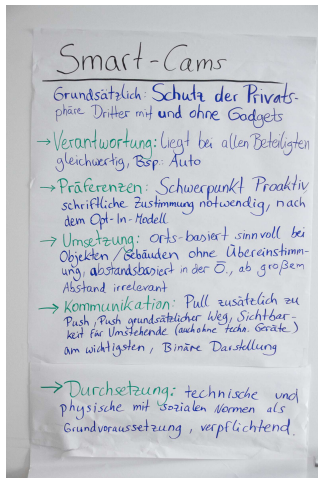 Smart-Cams
Grundsätzlich: Schutz der Privats-
phäre Dritter mit und ohne Gadgets
→ Verantwortung: Liegt bei allen Beteiligten
gleichwertig, Bsp: Auto
→ Präferenzen: Schwerpunkt Proaktiv
schriftliche Zustimmung notwendig, nach
dem Opt-In-Modell
→ Umsetzung: Orts-basiert sinnvoll bei
Objekten / Gebäuden ohne Übereinstimm-
ung, abstandsbasiert in der Ö., ab großem
Abstand irrelevant
→ Kommunikation: Pull zusätzlich zu
Push, Push grundsätzlicher Weg, Sichtbar-
keit für Umstehende (auch ohne techn. Geräte)
am wichtigsten, Binäre Darstellung
→ Durchsetzung: technische und
physische mit sozialen Normen als
Grundvoraussetzung, verpflichtend.